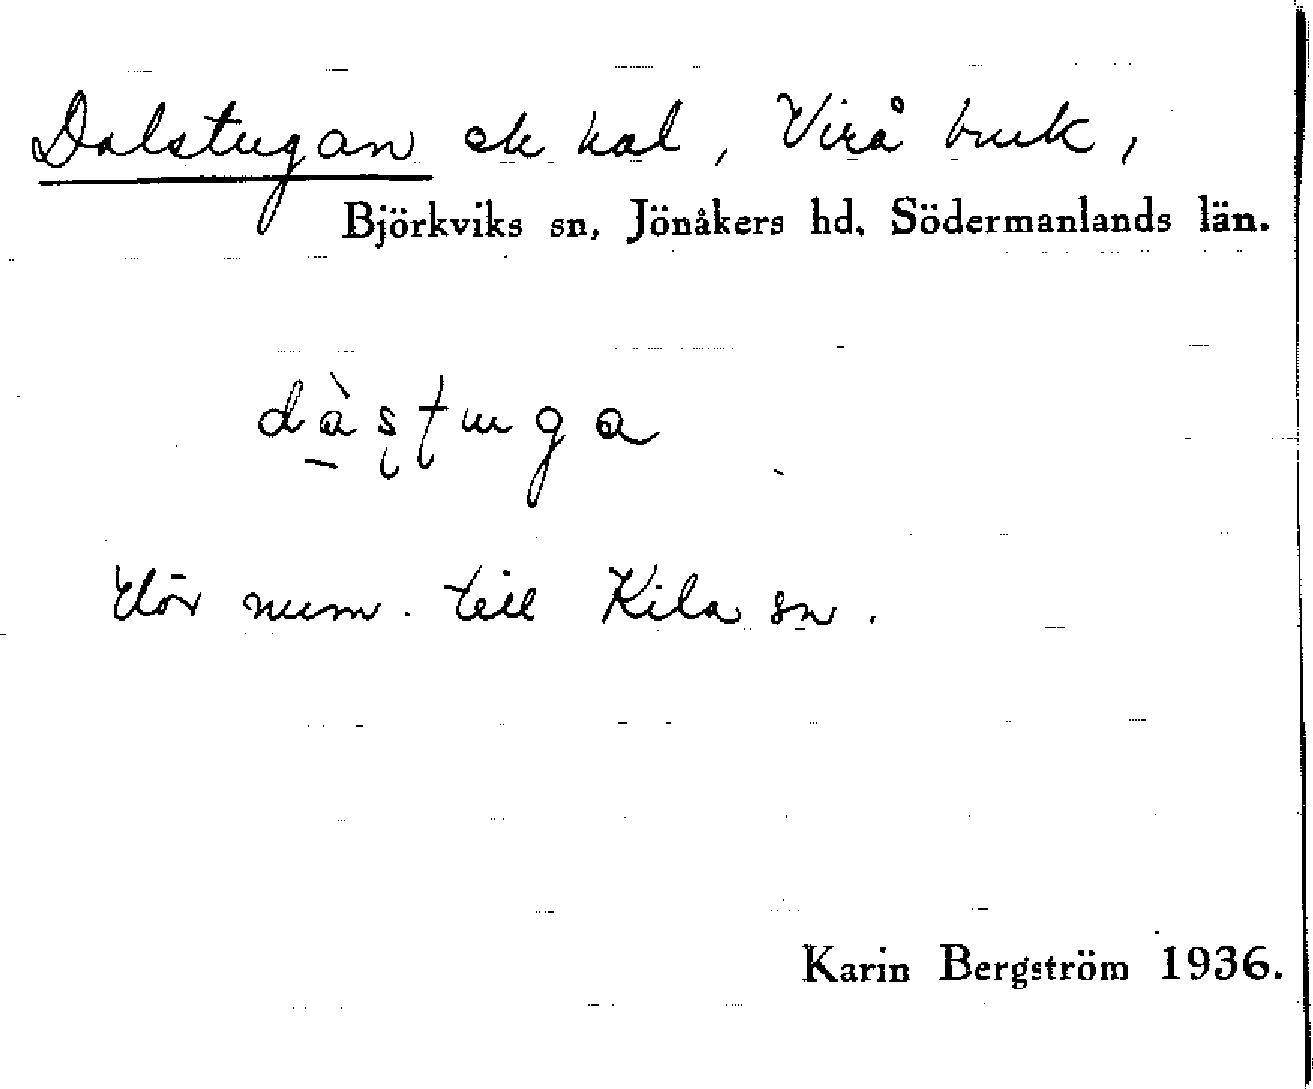 Dalstugan ek kal, Virå bruk,
Björkviks sn, Jönåkers hd, Södermanlands län.
dà̱ʂʈuga
Hör num. till Kila sn.
Karin Bergström 1936.